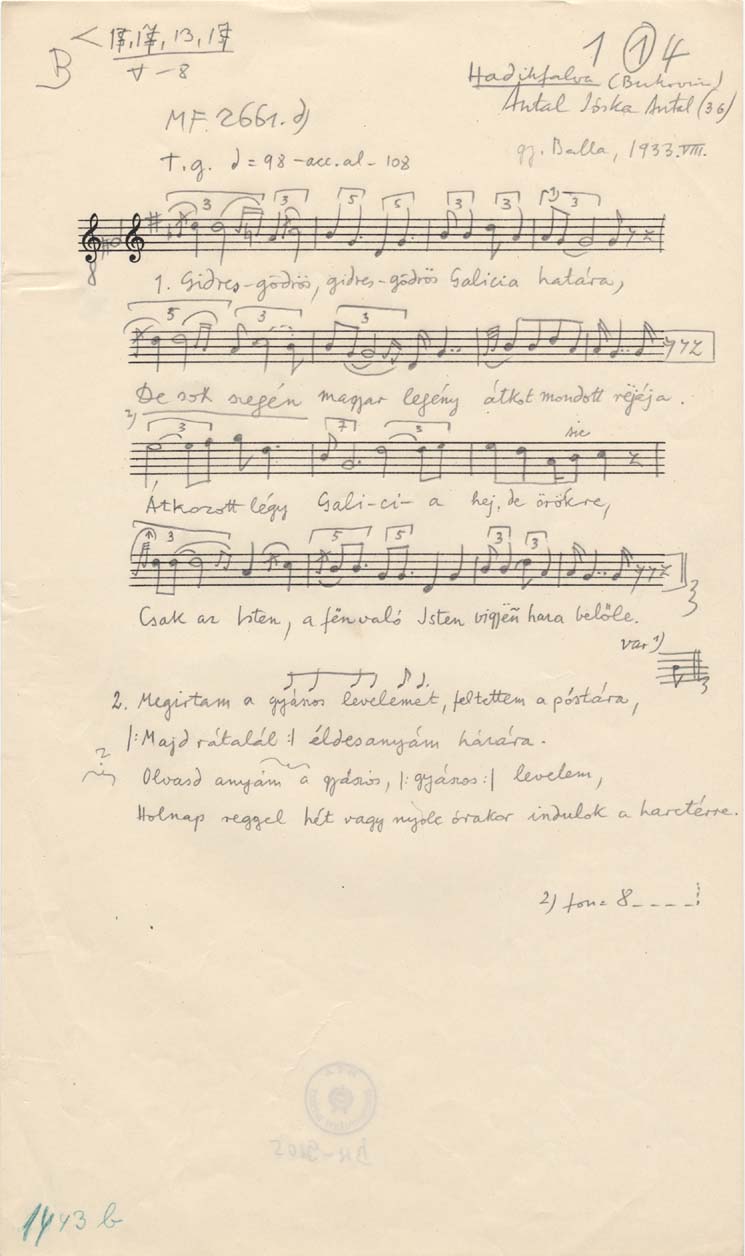 B
V-8
1 1 4
Hadikfalva (Bukovina)
Antal Jóska Antal (36)
MF. 2661. d)
gy. Balla, 1933.VIII.
T.g. = 98 - acc. al - 108
1. Gidres-gödrös, gidres-gödrös Galicia határa,
De sok szegén magyar legény átkot mondott réjája.
2)
sic
Átkozott légy Gali-ci-a hej, de örökre,
Csak az Isten, a fënvaló Isten vigjën hara belőle.
var 1)
2. Megirtam a gyászos levelemet, feltettem a póstára,
|: Majd rátalál :| éldesanyám házára.
Olvasd anyám a gyászos, |: gyászos :| levelem,
Holnap reggel hét vagy nyolc órakor indulok a harctérre.
2) fon = 8----
1443 b